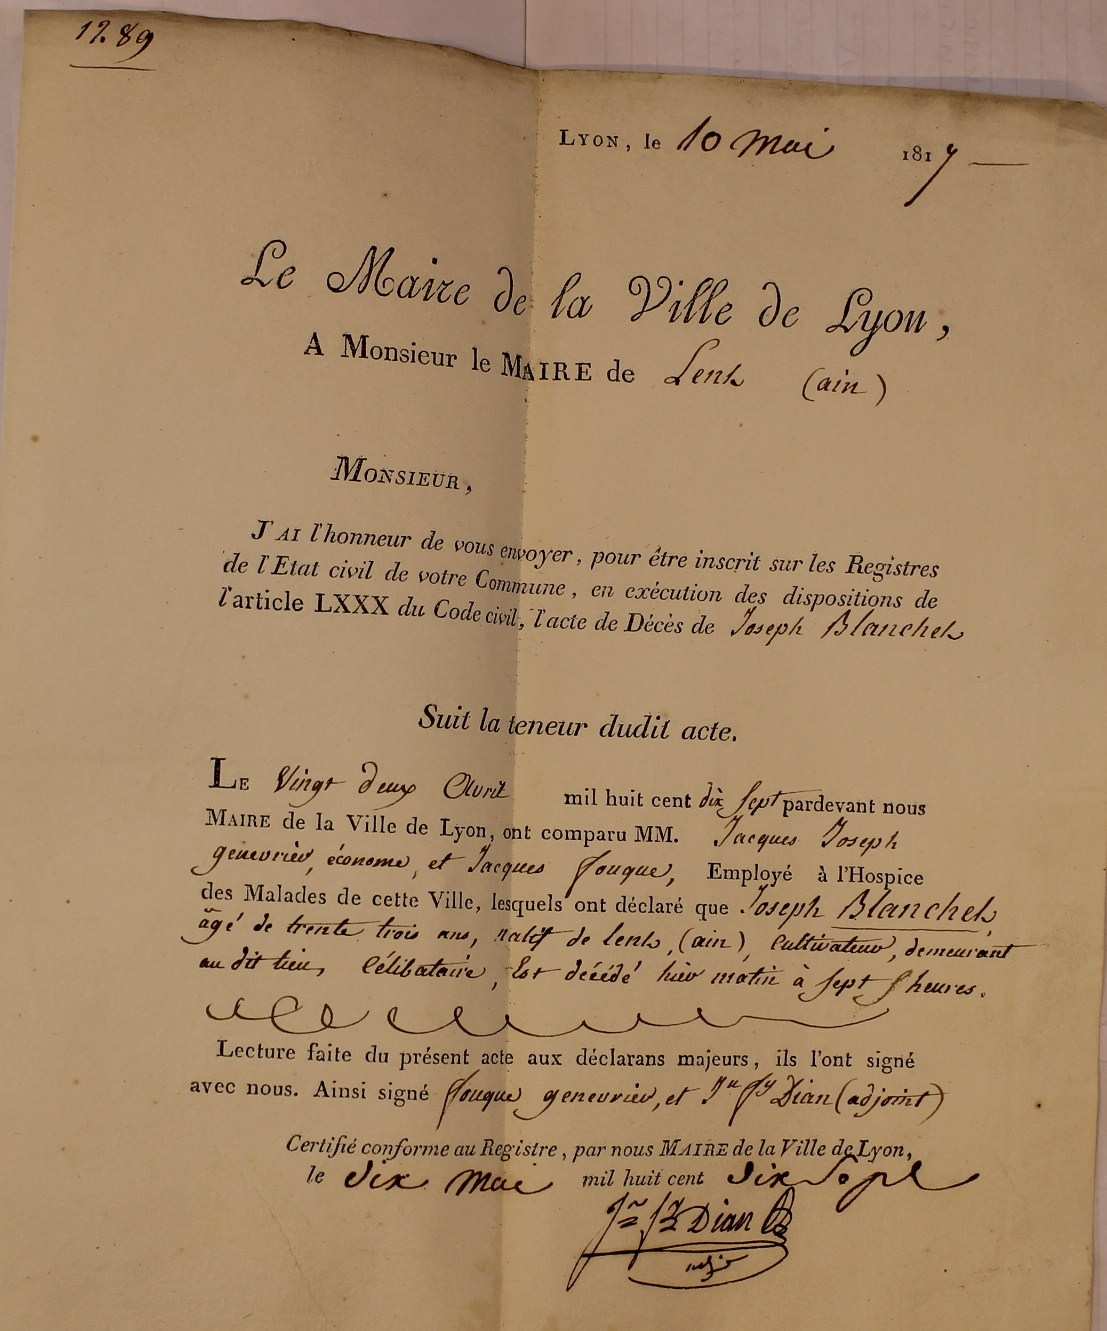 1289
LYON, le 10 mai 1817
Le Maire de la Ville de Lyon,
A Monsieur le MAIRE de Lent (ain)
MONSIEUR,
J'AI l'honneur de vous envoyer, pour être inscrit sur les Registres
de l'Etat civil de votre Commune, en exécution des dispositions de
l'article LXXX du Code civil, l'acte de Décès de Joseph Blanchet
Suit la teneur dudit acte.
LE Vingt deux Avril mil huit cent dix Sept pardevant nous
MAIRE de la Ville de Lyon, ont comparu MM. Jacques Joseph
genevrier, économe, et Jacques fouque, Employé à l'Hospice
des Malades de cette Ville, lesquels ont déclaré que Joseph Blanchet,
âgé de trente trois ans, natif de lent, (ain), cultivateur, demeurant
au dit lieu, Célibataire, Est décédé hier matin à sept heures.
Lecture faite du présent acte aux déclarans majeurs, ils l'ont signé
avec nous. Ainsi signé fouque genevrier, et Jn fs Dian (adjoint)
Certifié conforme au Registre, par nous MAIRE de la Ville de Lyon,
le dix mai mil huit cent dix Sept
Jn fs Dian
adjt